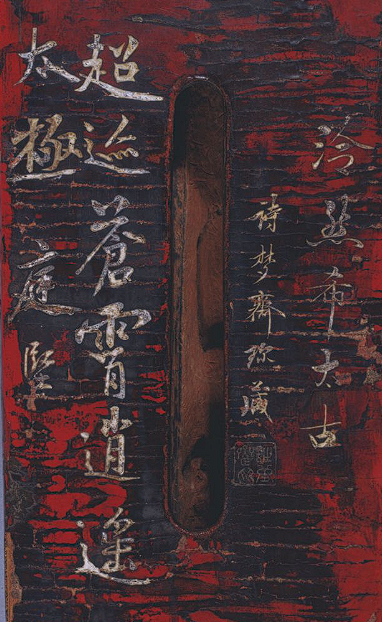 泠然希太古
詩梦齋珍藏
超迹蒼霄逍遙
太極庭堅